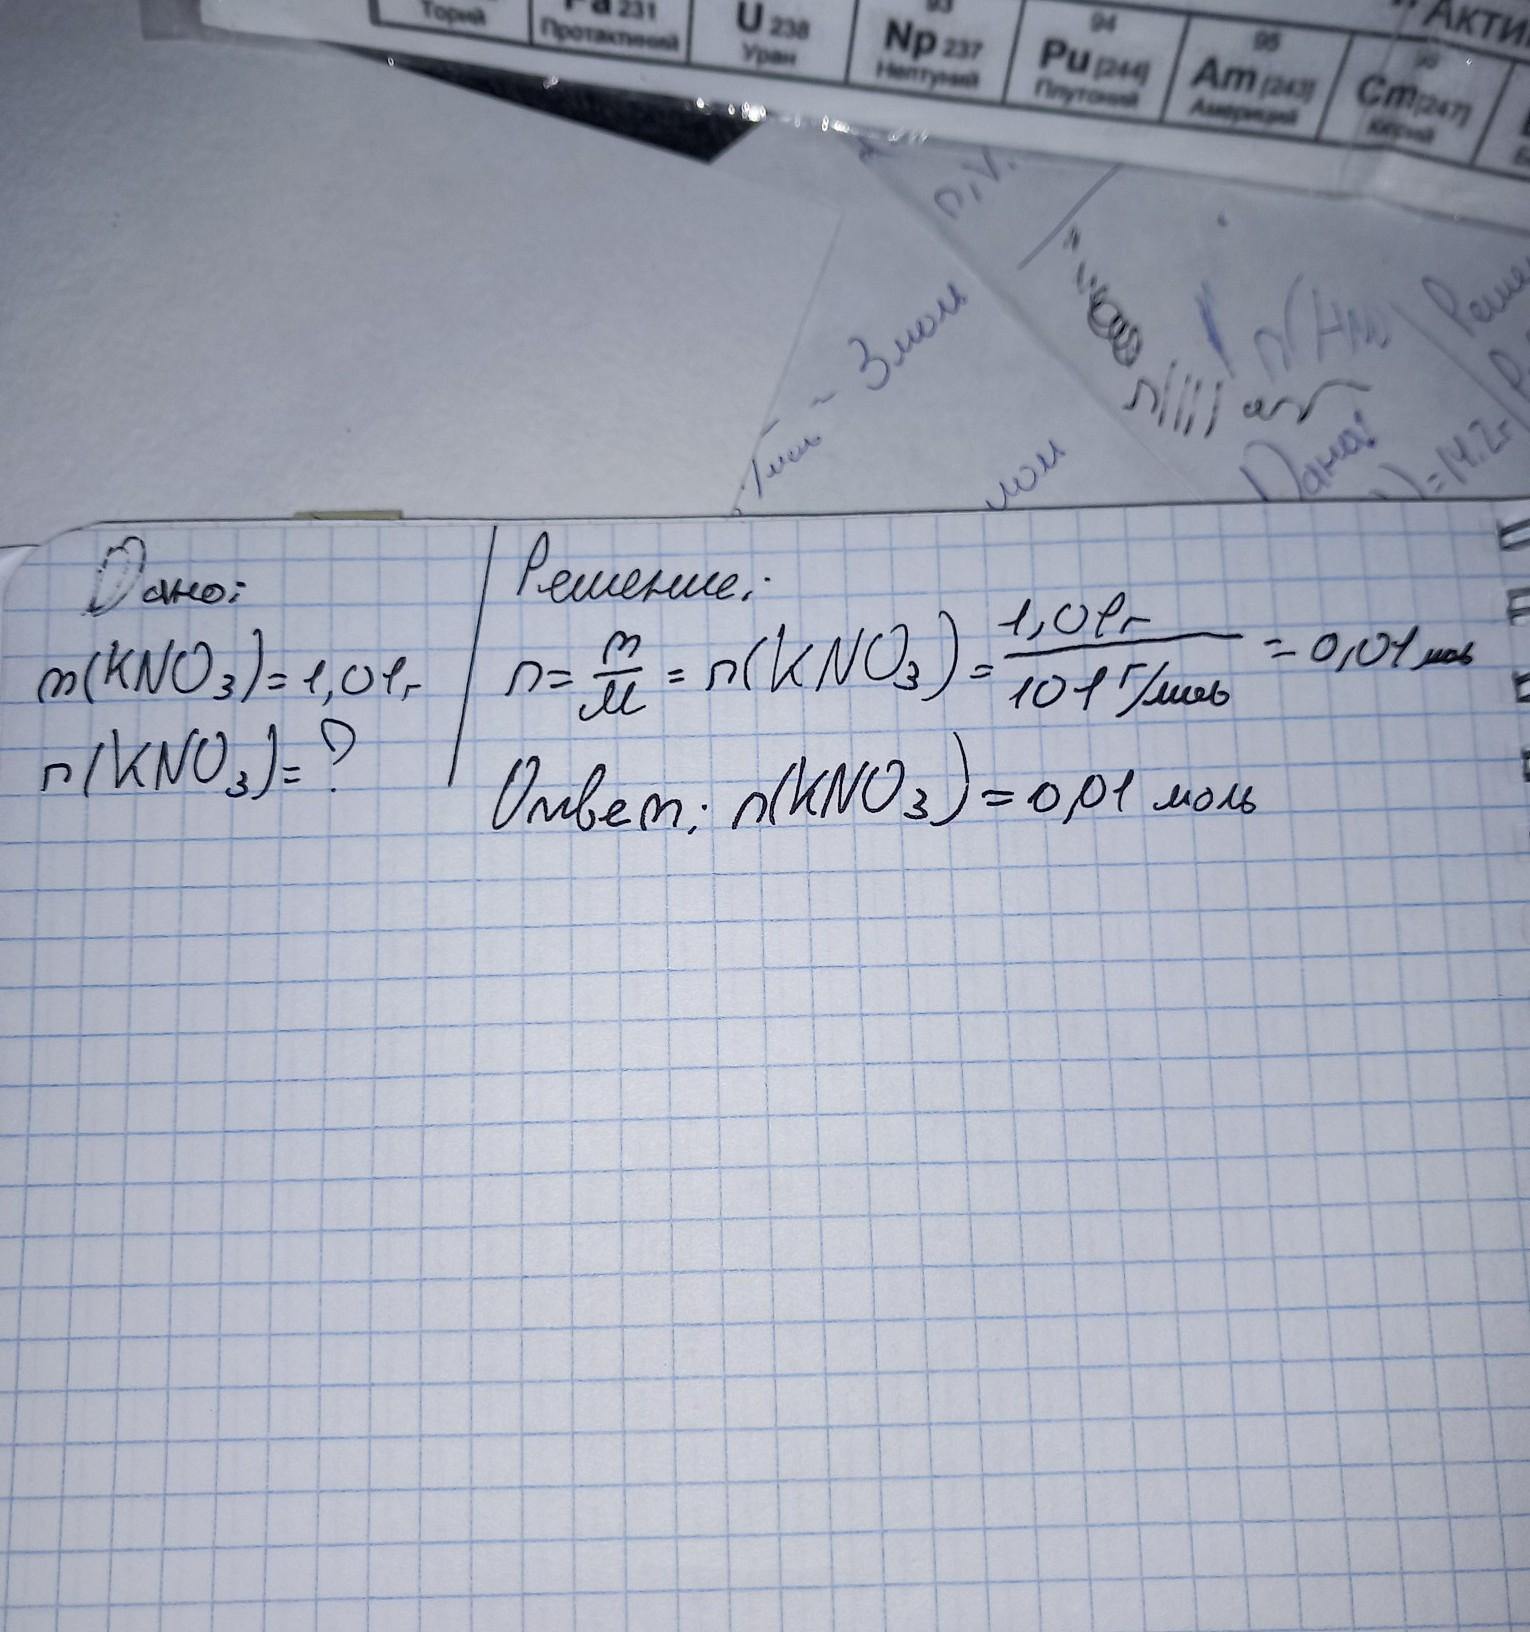 93 94 95 96
Торий Pa 231 U 238 Np 237 Pu [244] Am [243] Cm [247] "Акти
Протактиний Уран Нептуний Плутоний Америций Кюрий
n, V.
3 моль
моль
Дано:
=14.2г
Дано:
m(KNO₃)=1,01г
n(KNO₃)=?
Решение:
n= m/M = n(KNO₃)= 1,01г / 101 г/моль = 0,01 моль
Ответ: n(KNO₃)=0,01 моль